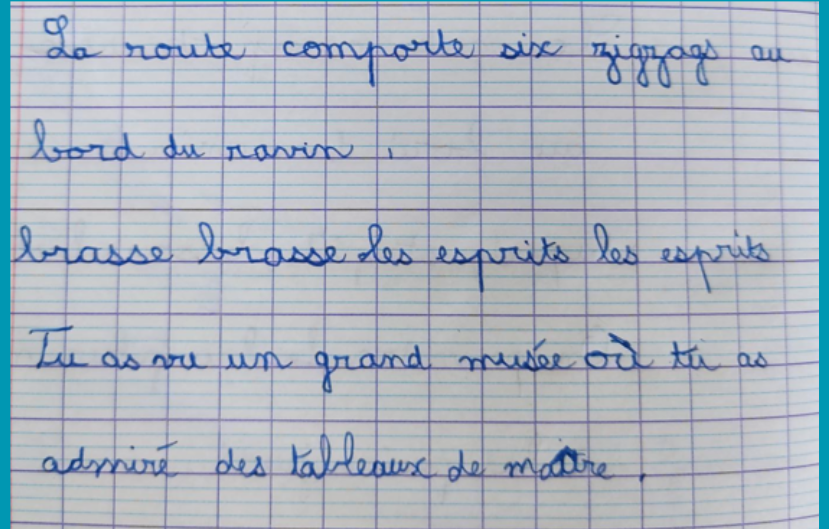 La route comporte six zigzags au
bord du ravin.
brasse brasse les esprits les esprits
Tu as vu un grand musée où tu as
admiré des tableaux de maître.